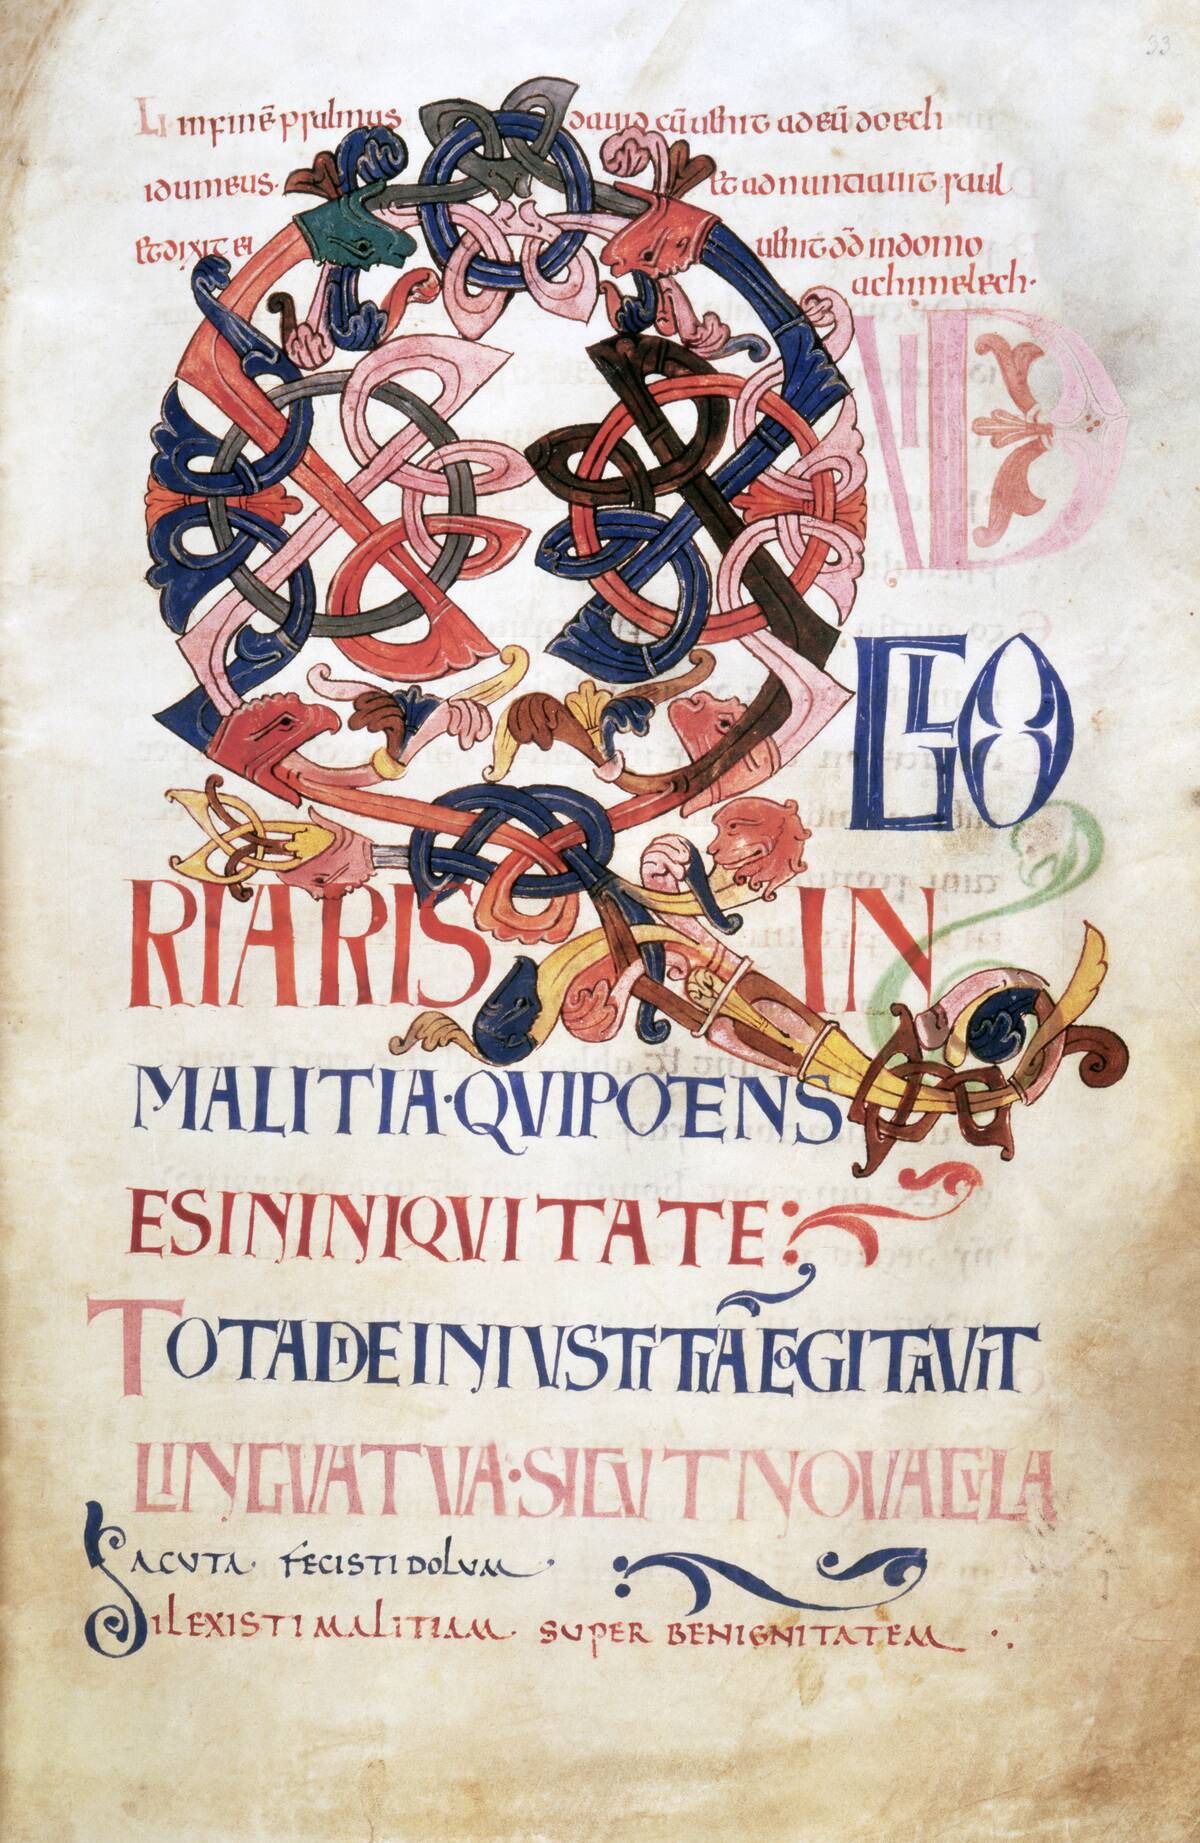 33
LI in finē psalmus dauid cū uenit ad eū doech
idumeus. et adnuntiauit saul
et dixit ei uenit dd̄ in domo
achimelech.
QVID
GLO
RIARIS IN
MALITIA·QVIPOTENS
ES IN INIQVITATE:
TOTA DIE INIVSTITIĀ COGITAVIT
LINGVA TVA·SICVT NOVACVLA
ACVTA· FECISTI DOLVM
DILEXISTI MALITIAM· SUPER BENIGNITATEM